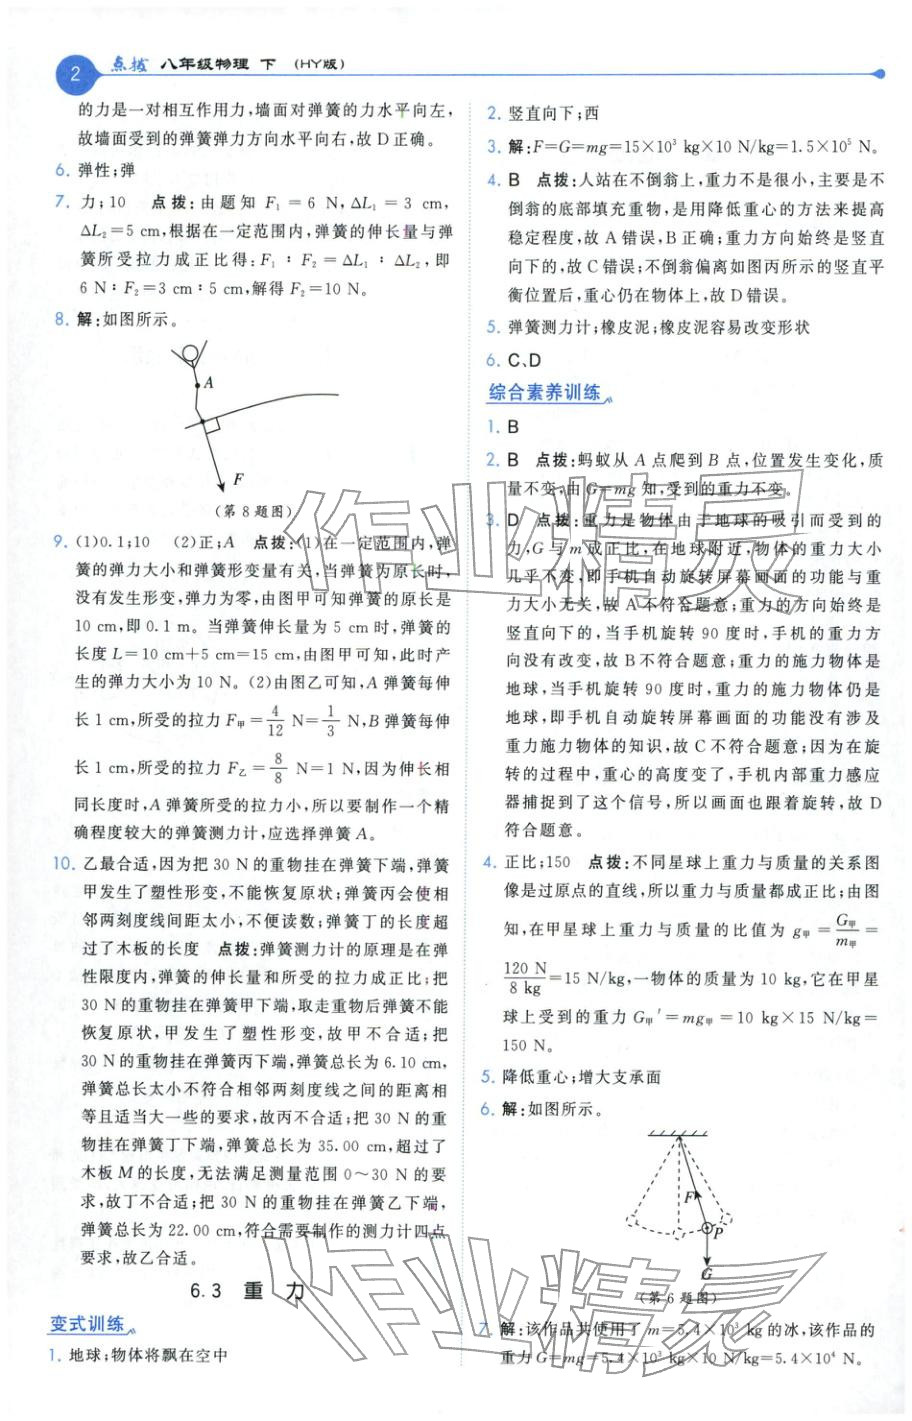 2 点拨 八年级物理 下 (HY版)
的力是一对相互作用力,墙面对弹簧的力水平向左,
故墙面受到的弹簧弹力方向水平向右,故 D 正确。
6. 弹性;弹
7. 力;10 点拨:由题知 F₁=6 N,ΔL₁=3 cm,
ΔL₂=5 cm,根据在一定范围内,弹簧的伸长量与弹
簧所受拉力成正比得:F₁∶F₂=ΔL₁∶ΔL₂,即
6 N∶F₂=3 cm∶5 cm,解得 F₂=10 N。
8. 解:如图所示。
A
F
(第 8 题图)
9. (1)0.1;10 (2)正;A 点拨:(1)在一定范围内,弹
簧的弹力大小和弹簧形变量有关,当弹簧为原长时,
没有发生形变,弹力为零,由图甲可知弹簧的原长是
10 cm,即 0.1 m。当弹簧伸长量为 5 cm 时,弹簧的
长度 L=10 cm+5 cm=15 cm,由图甲可知,此时产
生的弹力大小为 10 N。(2)由图乙可知,A 弹簧每伸
长 1 cm,所受的拉力 F甲=4/12 N=1/3 N,B 弹簧每伸
长 1 cm,所受的拉力 F乙=8/8 N=1 N,因为伸长相
同长度时,A 弹簧所受的拉力小,所以要制作一个精
确程度较大的弹簧测力计,应选择弹簧 A。
10. 乙最合适,因为把 30 N 的重物挂在弹簧下端,弹簧
甲发生了塑性形变,不能恢复原状;弹簧丙会使相
邻两刻度线间距太小,不便读数;弹簧丁的长度超
过了木板的长度 点拨:弹簧测力计的原理是在弹
性限度内,弹簧的伸长量和所受的拉力成正比;把
30 N 的重物挂在弹簧甲下端,取走重物后弹簧不能
恢复原状,甲发生了塑性形变,故甲不合适;把
30 N 的重物挂在弹簧丙下端,弹簧总长为 6.10 cm,
弹簧总长太小不符合相邻两刻度线之间的距离相
等且适当大一些的要求,故丙不合适;把 30 N 的重
物挂在弹簧丁下端,弹簧总长为 35.00 cm,超过了
木板 M 的长度,无法满足测量范围 0～30 N 的要
求,故丁不合适;把 30 N 的重物挂在弹簧乙下端,
弹簧总长为 22.00 cm,符合需要制作的测力计四点
要求,故乙合适。
6.3 重 力
变式训练
1. 地球;物体将飘在空中
2. 竖直向下;西
3. 解:F=G=mg=15×10³ kg×10 N/kg=1.5×10⁵ N。
4. B 点拨:人站在不倒翁上,重力不是很小,主要是不
倒翁的底部填充重物,是用降低重心的方法来提高
稳定程度,故 A 错误,B 正确;重力方向始终是竖直
向下的,故 C 错误;不倒翁偏离如图丙所示的竖直平
衡位置后,重心仍在物体上,故 D 错误。
5. 弹簧测力计;橡皮泥;橡皮泥容易改变形状
6. C、D
综合素养训练
1. B
2. B 点拨:蚂蚁从 A 点爬到 B 点,位置发生变化,质
量不变,由 G=mg 知,受到的重力不变。
3. D 点拨:重力是物体由于地球的吸引而受到的
力,G 与 m 成正比,在地球附近,物体的重力大小
几乎不变,即手机自动旋转屏幕画面的功能与重
力大小无关,故 A 不符合题意;重力的方向始终是
竖直向下的,当手机旋转 90 度时,手机的重力方
向没有改变,故 B 不符合题意;重力的施力物体是
地球,当手机旋转 90 度时,重力的施力物体仍是
地球,即手机自动旋转屏幕画面的功能没有涉及
重力施力物体的知识,故 C 不符合题意;因为在旋
转的过程中,重心的高度变了,手机内部重力感应
器捕捉到了这个信号,所以画面也跟着旋转,故 D
符合题意。
4. 正比;150 点拨:不同星球上重力与质量的关系图
像是过原点的直线,所以重力与质量都成正比;由图
知,在甲星球上重力与质量的比值为 g甲=G甲/m甲=
120 N/8 kg=15 N/kg,一物体的质量为 10 kg,它在甲星
球上受到的重力 G甲′=mg甲=10 kg×15 N/kg=
150 N。
5. 降低重心;增大支承面
6. 解:如图所示。
F
P
G
(第 6 题图)
7. 解:该作品共使用了 m=5.4×10³ kg 的冰,该作品的
重力 G=mg=5.4×10³ kg×10 N/kg=5.4×10⁴ N。
作业精灵
作业精灵